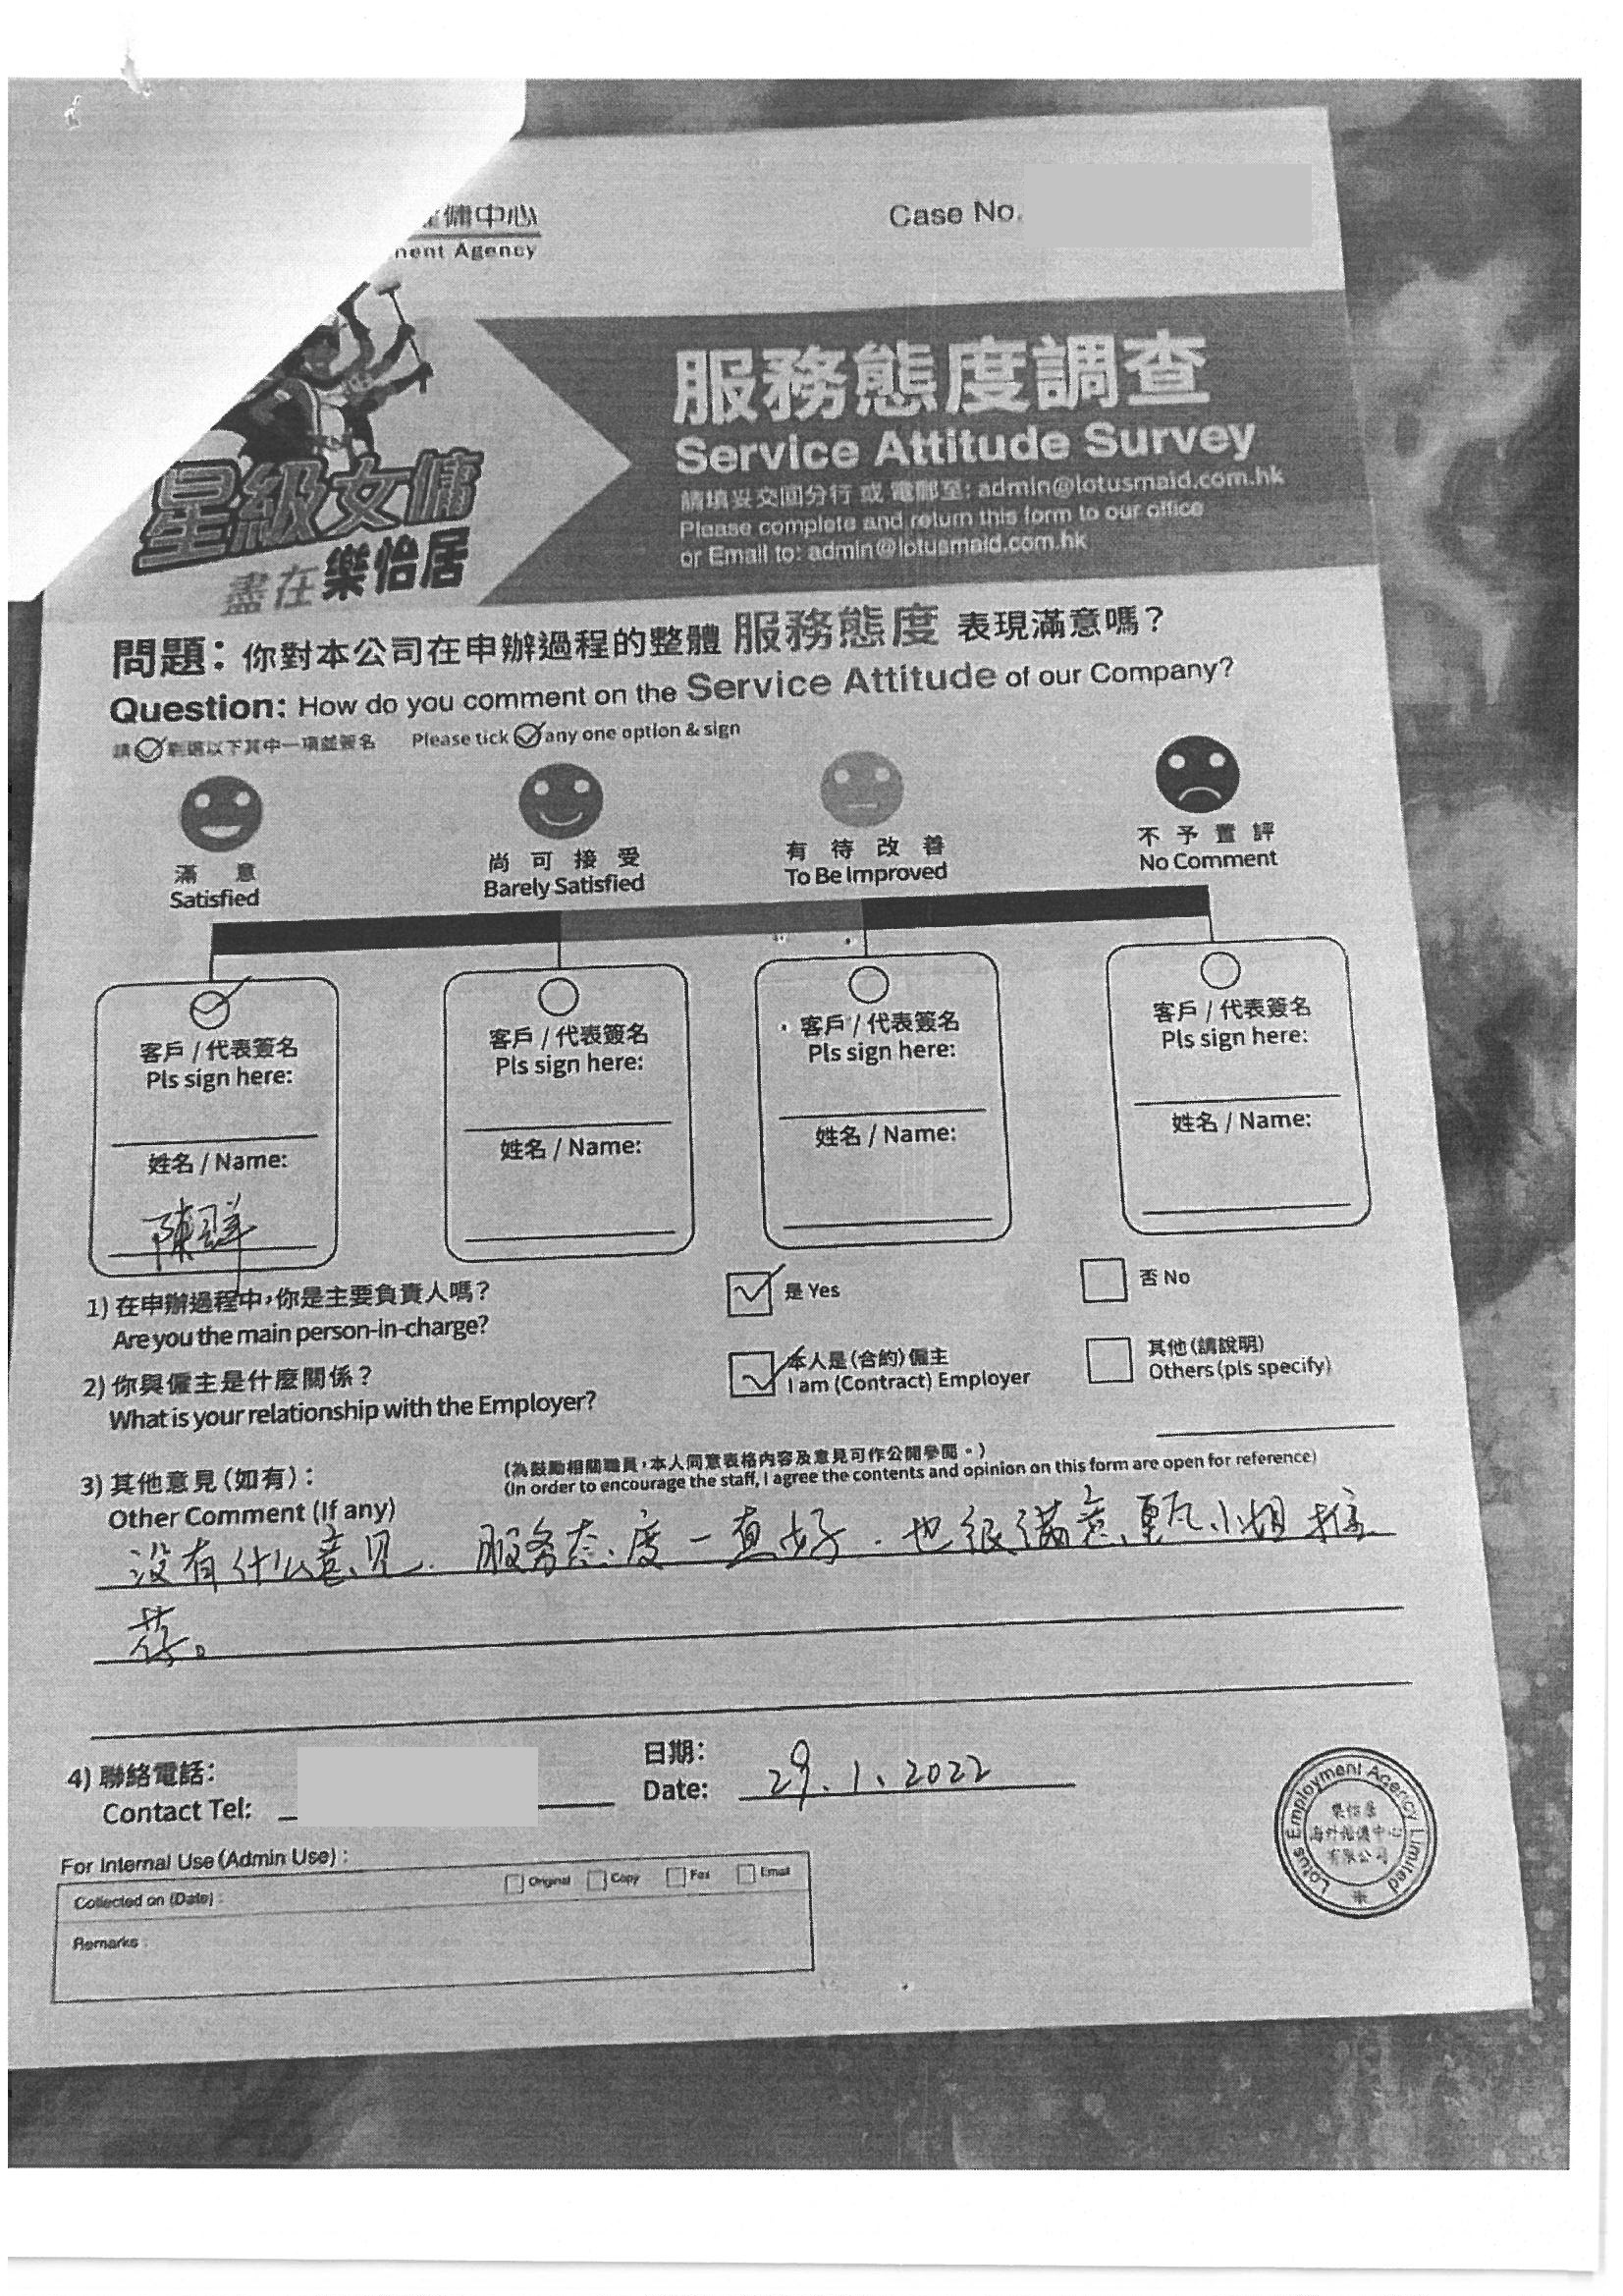 傭中心
ment Agency
Case No.
星級女傭
盡在樂怡居
服務態度調查
Service Attitude Survey
請填妥交回分行 或 電郵至: admin@lotusmaid.com.hk
Please complete and return this form to our office
or Email to: admin@lotusmaid.com.hk
問題：你對本公司在申辦過程的整體 服務態度 表現滿意嗎？
Question: How do you comment on the Service Attitude of our Company?
請剔選以下其中一項並簽名 Please tick any one option & sign
滿意
Satisfied
尚可接受
Barely Satisfied
有待改善
To Be Improved
不予置評
No Comment
客戶 / 代表簽名
Pls sign here:
姓名 / Name:
陳
客戶 / 代表簽名
Pls sign here:
姓名 / Name:
客戶 / 代表簽名
Pls sign here:
姓名 / Name:
客戶 / 代表簽名
Pls sign here:
姓名 / Name:
1) 在申辦過程中，你是主要負責人嗎？ 是 Yes 否 No
Are you the main person-in-charge?
2) 你與僱主是什麼關係？ 本人是(合約)僱主 其他(請說明)
What is your relationship with the Employer? I am (Contract) Employer Others (pls specify)
3) 其他意見(如有)： (為鼓勵相關職員，本人同意表格內容及意見可作公開參閱。)
Other Comment (If any) (In order to encourage the staff, I agree the contents and opinion on this form are open for reference)
没有什么意见. 服务态度一直好. 也很满意甄小姐推
荐。
4) 聯絡電話： 日期：
Contact Tel: Date: 29.1.2022
For Internal Use (Admin Use) :
Collected on (Date) : Original Copy Fax Email
Remarks :
Lotus Employment Agency Limited
樂怡居
海外僱傭中心
有限公司